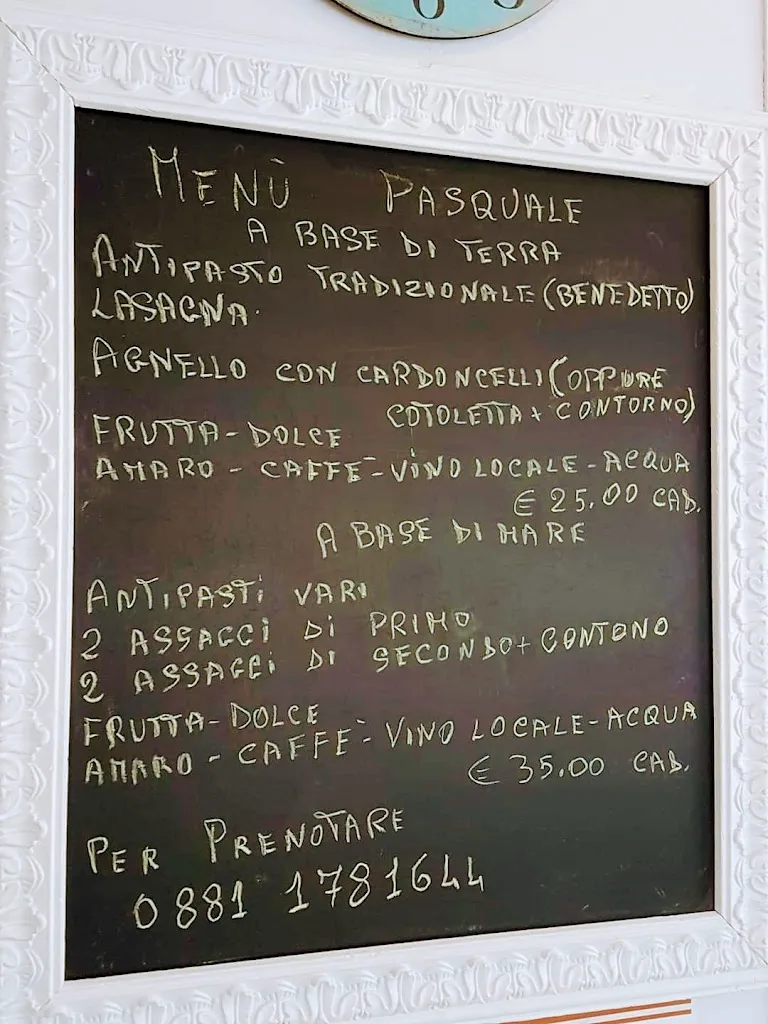 MENÙ PASQUALE
A BASE DI TERRA
ANTIPASTO TRADIZIONALE (BENEDETTO)
LASAGNA.
AGNELLO CON CARDONCELLI (OPPURE
COTOLETTA + CONTORNO)
FRUTTA - DOLCE
AMARO - CAFFÈ - VINO LOCALE - ACQUA
€ 25.00 CAD.
A BASE DI MARE
ANTIPASTI VARI
2 ASSAGGI DI PRIMO
2 ASSAGGI DI SECONDO + CONTONO
FRUTTA - DOLCE
AMARO - CAFFÈ - VINO LOCALE - ACQUA
€ 35.00 CAD.
PER PRENOTARE
0881 1781644